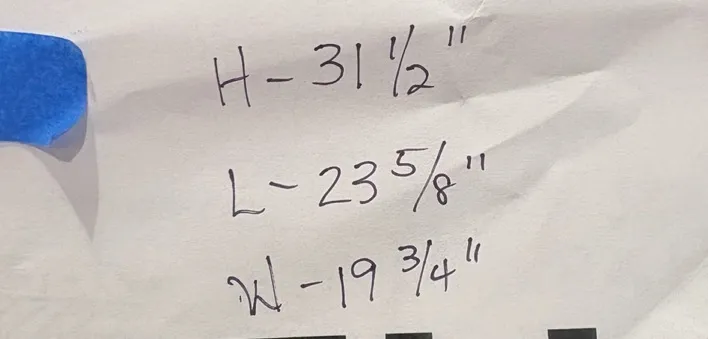 H - 31 1/2"
L - 23 5/8"
W - 19 3/4"